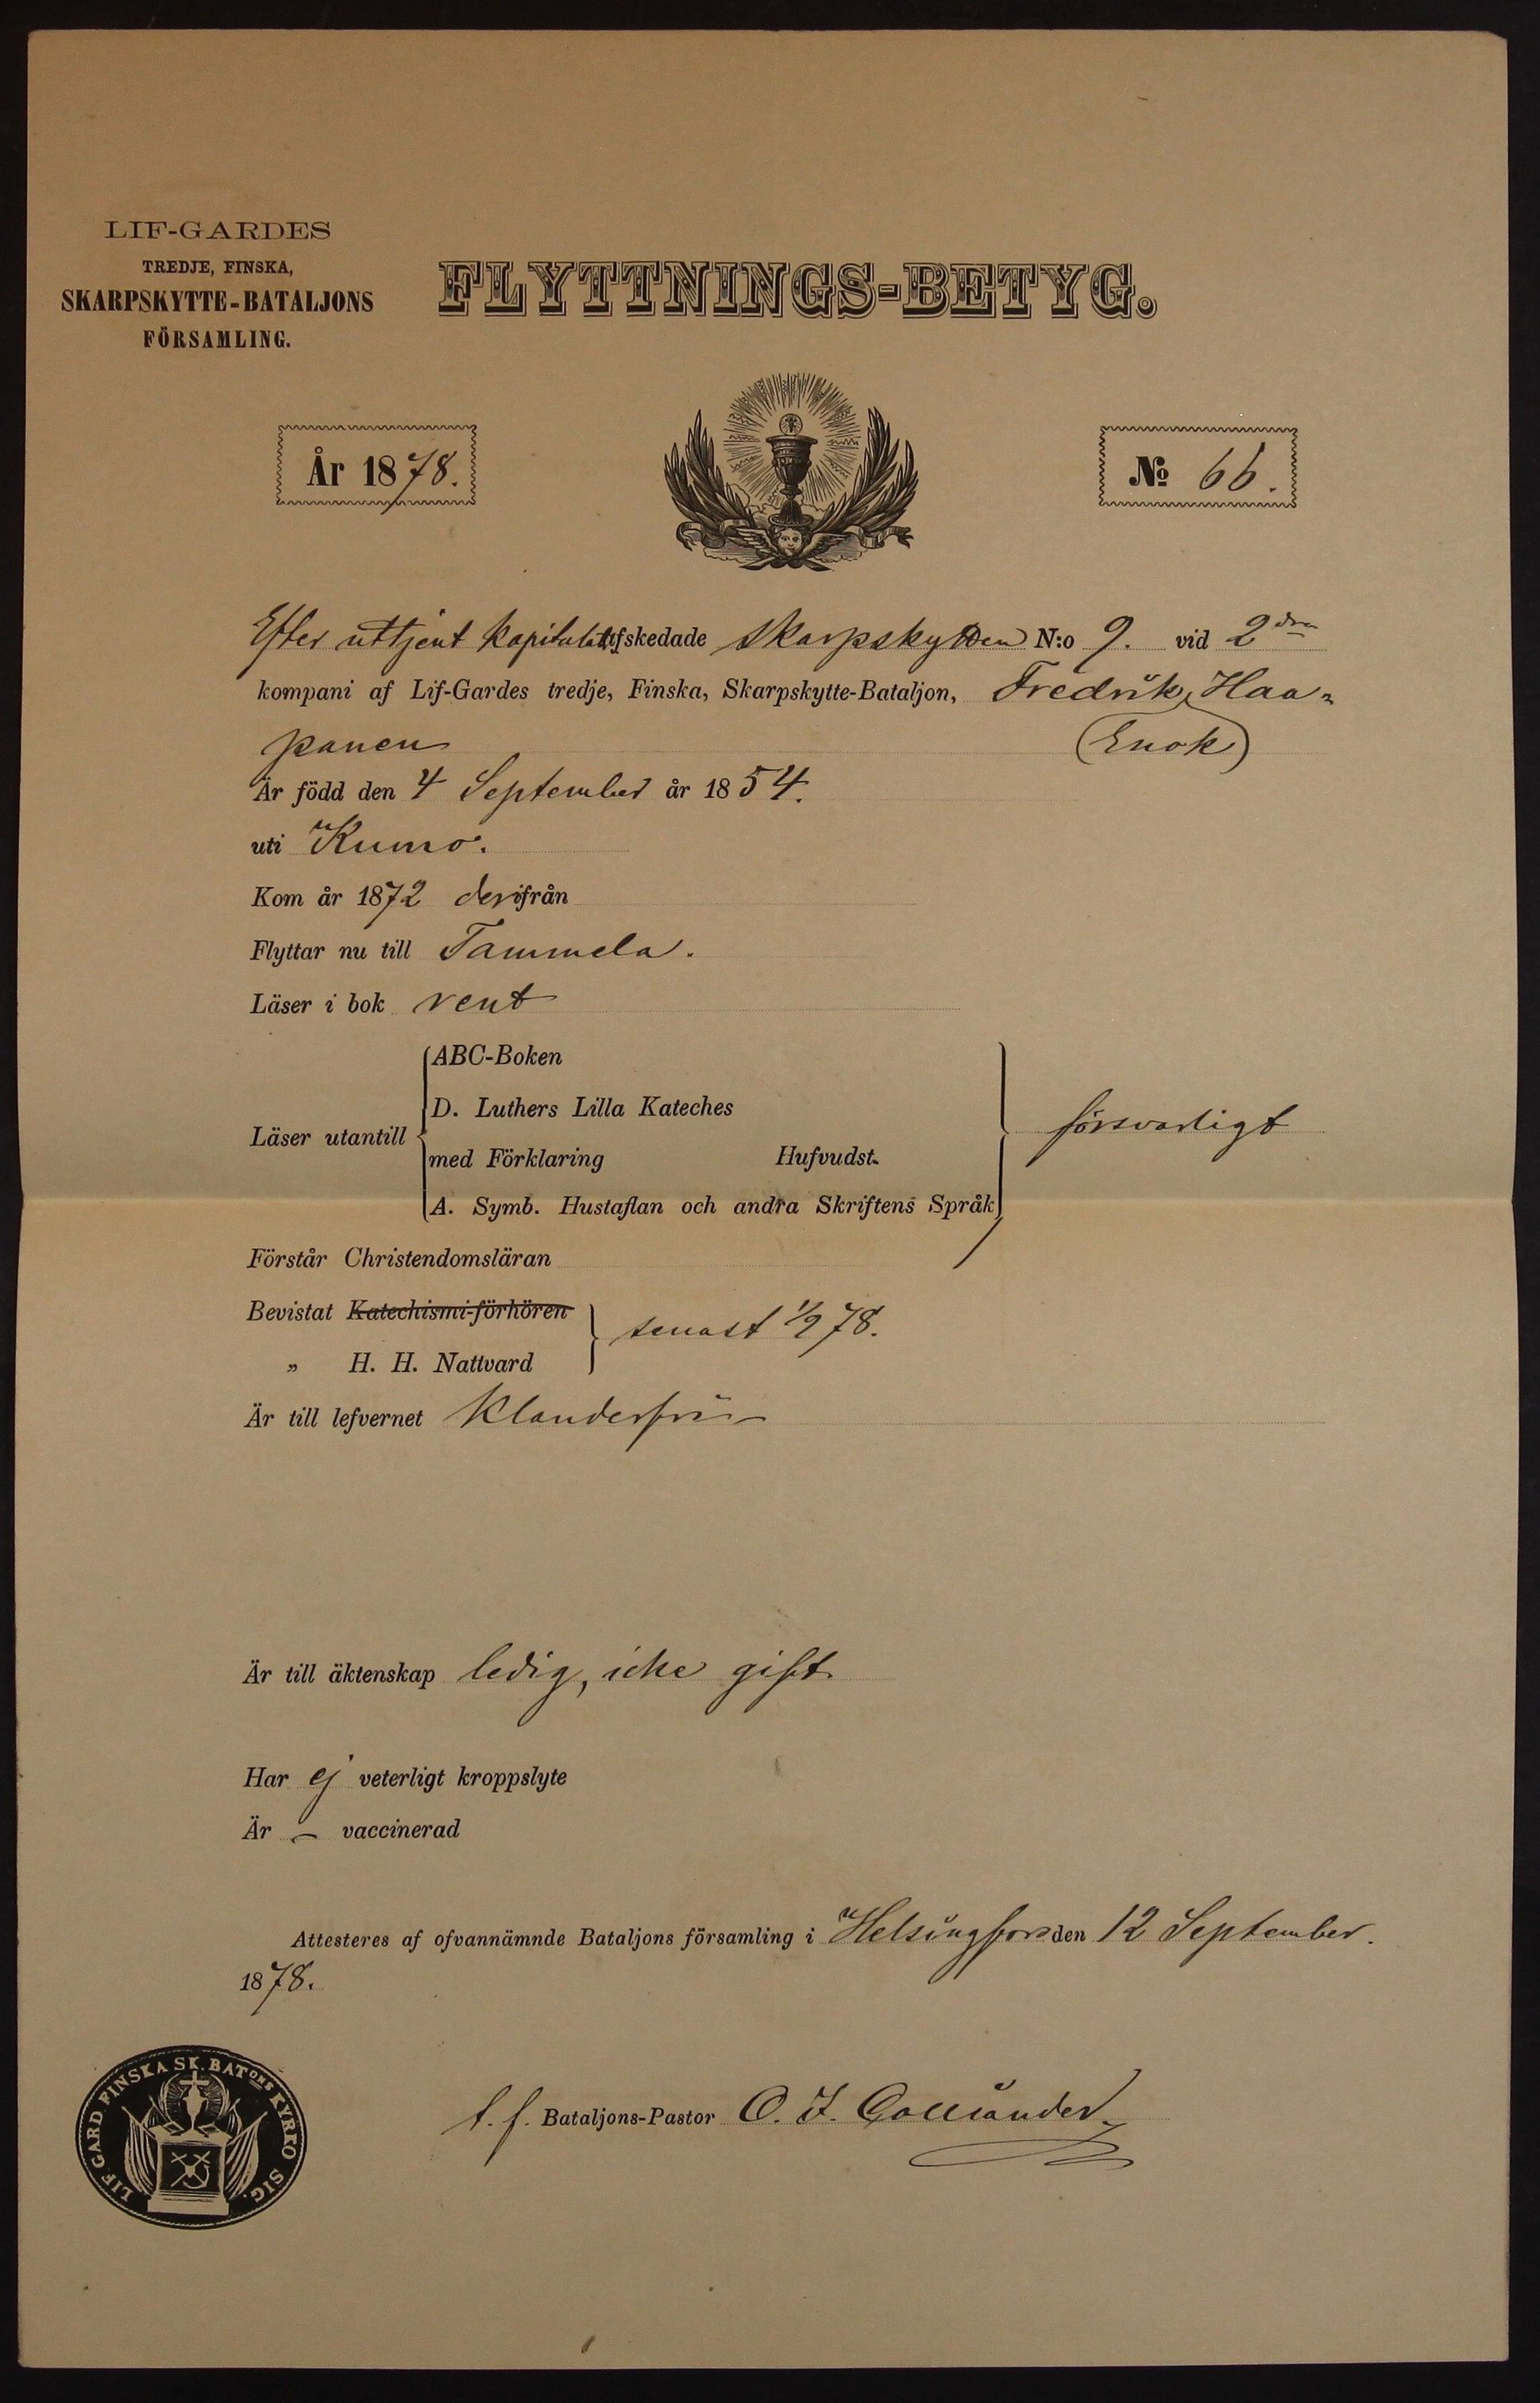 LIF-GARDES
TREDJE, FINSKA,
SKARPSKYTTE-BATALJONS
FÖRSAMLING.
FLYTTNINGS-BETYG.
År 1878.
No 66.
Efter uttjent Kapitulat. afskedade Skarpskytten N:o 9. vid 2dra
kompani af Lif-Gardes tredje, Finska, Skarpskytte-Bataljon, Fredrik Haa-
panen (Enok)
Är född den 4 September år 1854.
uti Kumo.
Kom år 1872 derifrån
Flyttar nu till Tammela.
Läser i bok rent
Läser utantill
ABC-Boken
D. Luthers Lilla Kateches
med Förklaring Hufvudst.
A. Symb. Hustaflan och andra Skriftens Språk
försvarligt
Förstår Christendomsläran
Bevistat Katechismi-förhören
„ H. H. Nattvard
senast 1/9 78.
Är till lefvernet Klanderfri
Är till äktenskap ledig, icke gift
Har ej veterligt kroppslyte
Är — vaccinerad
Attesteres af ofvannämnde Bataljons församling i Helsingfors den 12 September.
1878.
t. f. Bataljons-Pastor O. I. Colliander
LIF. GARD FINSKA SK. BATONS KYRKO SIG.